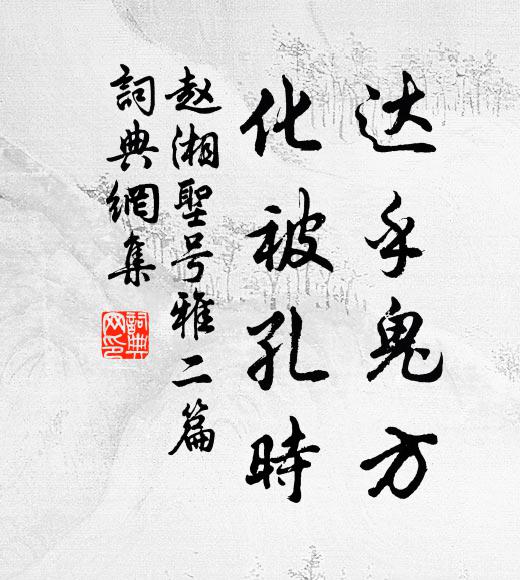 达乎鬼方
化被孔時
赵湘聖号雅二篇
詞典網集
詞典
网印